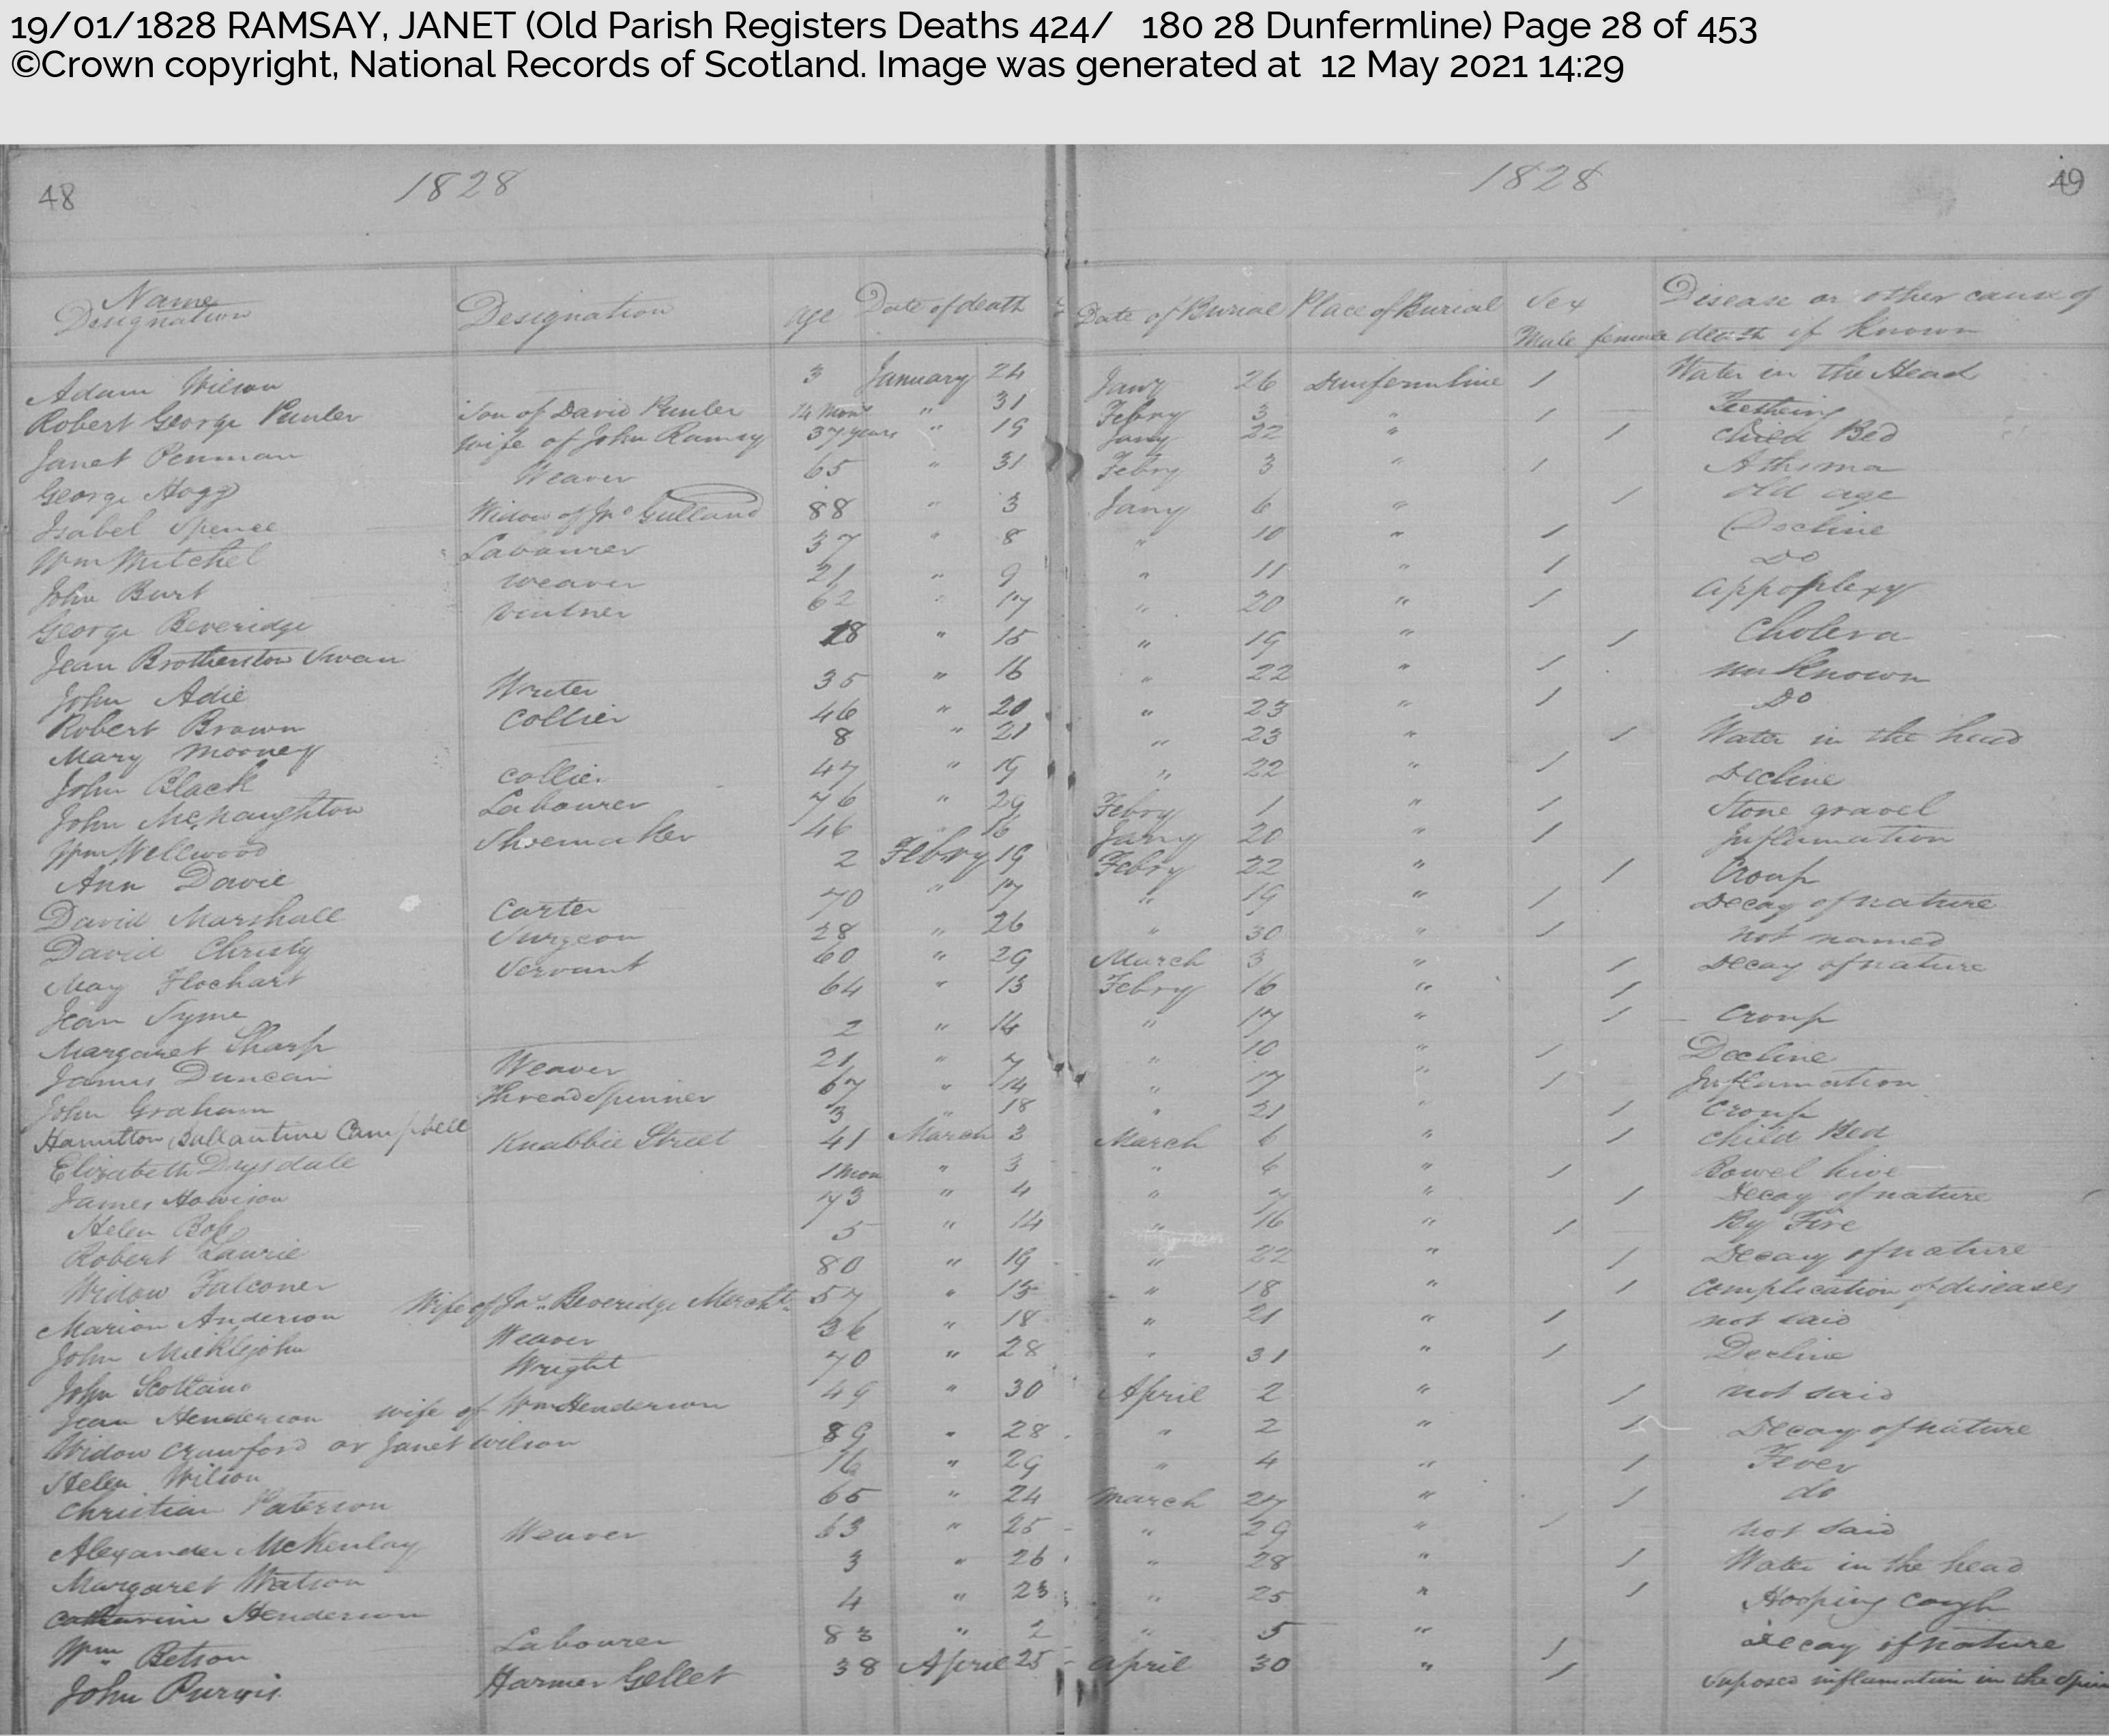 19/01/1828 RAMSAY, JANET (Old Parish Registers Deaths 424/ 180 28 Dunfermline) Page 28 of 453
©Crown copyright, National Records of Scotland. Image was generated at 12 May 2021 14:29
48 1828 1828 49
Name Designation Designation age Date of death Date of Burial Place of Burial Sex Male female Disease or other cause of death if known
Adam Wilson 3 January 24 Jany 26 Dunfermline 1 Water in the Head
Robert George Punler Son of David Punler 14 Mons " 31 Febry 3 " 1 Teething
Janet Penman wife of John Ramsy 37 years " 19 Jany 22 " 1 Child Bed
George Hogg Weaver 65 " 31 Febry 3 " 1 Athsma
Isabel Spence Widow of Jno Gulland 88 " 3 Jany 6 " 1 old age
Wm Mitchel Labourer 37 " 8 " 10 " 1 Decline
John Burt weaver 21 " 9 " 11 " 1 Do
George Beveridge vintner 62 " 17 " 20 " 1 appoplexy
Jean Brotherston Swan 18 " 15 " 19 " 1 Cholera
John Adie Writer 35 " 16 " 22 " 1 unknown
Robert Brown Collier 46 " 20 " 23 " 1 Do
Mary Mooney 8 " 21 " 23 " 1 Water in the head
John Black Collier 47 " 19 " 22 " 1 Decline
John McNaughton Labourer 76 " 29 Febry 1 " 1 Stone gravel
Wm Wellwood Shoemaker 46 " 16 Jany 20 " 1 Inflamation
Ann Davie 2 Febry 19 Febry 22 " 1 Croup
David Marshall Carter 70 " 17 " 19 " 1 Decay of nature
David Christy Surgeon 28 " 26 " 30 " 1 not named
May Flochart Servant 60 " 29 March 3 " 1 Decay of nature
Jean Syme 64 " 13 Febry 16 " 1
Margaret Sharp 2 " 14 " 17 " 1 Croup
James Duncan Weaver 21 " 7 " 10 " 1 Decline
John Graham Thread Spinner 67 " 14 " 17 " 1 Inflamation
Hamilton Ballantine Campbell 3 " 18 " 21 " 1 Croup
Elizabeth Drysdale Knabbie Street 41 March 3 March 6 " 1 Child Bed
James Howison 1 Mon " 3 " 6 " 1 Bowel hive
Helen 73 " 4 " 7 " 1 Decay of nature
Robert Laurie 5 " 14 " 16 " 1 By Fire
Widow Falconer 80 " 19 " 22 " 1 Decay of nature
Marion Anderson Wife of Jas Beveridge Mercht 57 " 15 " 18 " 1 Complication of diseases
John Micklejohn Weaver 36 " 18 " 21 " 1 not said
John Scotland Wright 70 " 28 " 31 " 1 Decline
Jean Henderson wife of Wm Henderson 49 " 30 April 2 " 1 not said
Widow Crawford or Janet Wilson 89 " 28 " 2 " 1 Decay of nature
Helen Wilson 16 " 29 " 4 " 1 Fever
Christian Paterson 65 " 24 March 27 " 1 do
Alexander McKenlay Weaver 63 " 25 " 29 " 1 not said
Margaret Watson 3 " 26 " 28 " 1 Water in the head
Catharine Henderson 4 " 23 " 25 " 1 Hooping Cough
Wm Betson Labourer 83 " 2 " 5 " 1 Decay of nature
John Purvis Harmer Gellet 38 April 25 April 30 " 1 Suposed inflamation in the